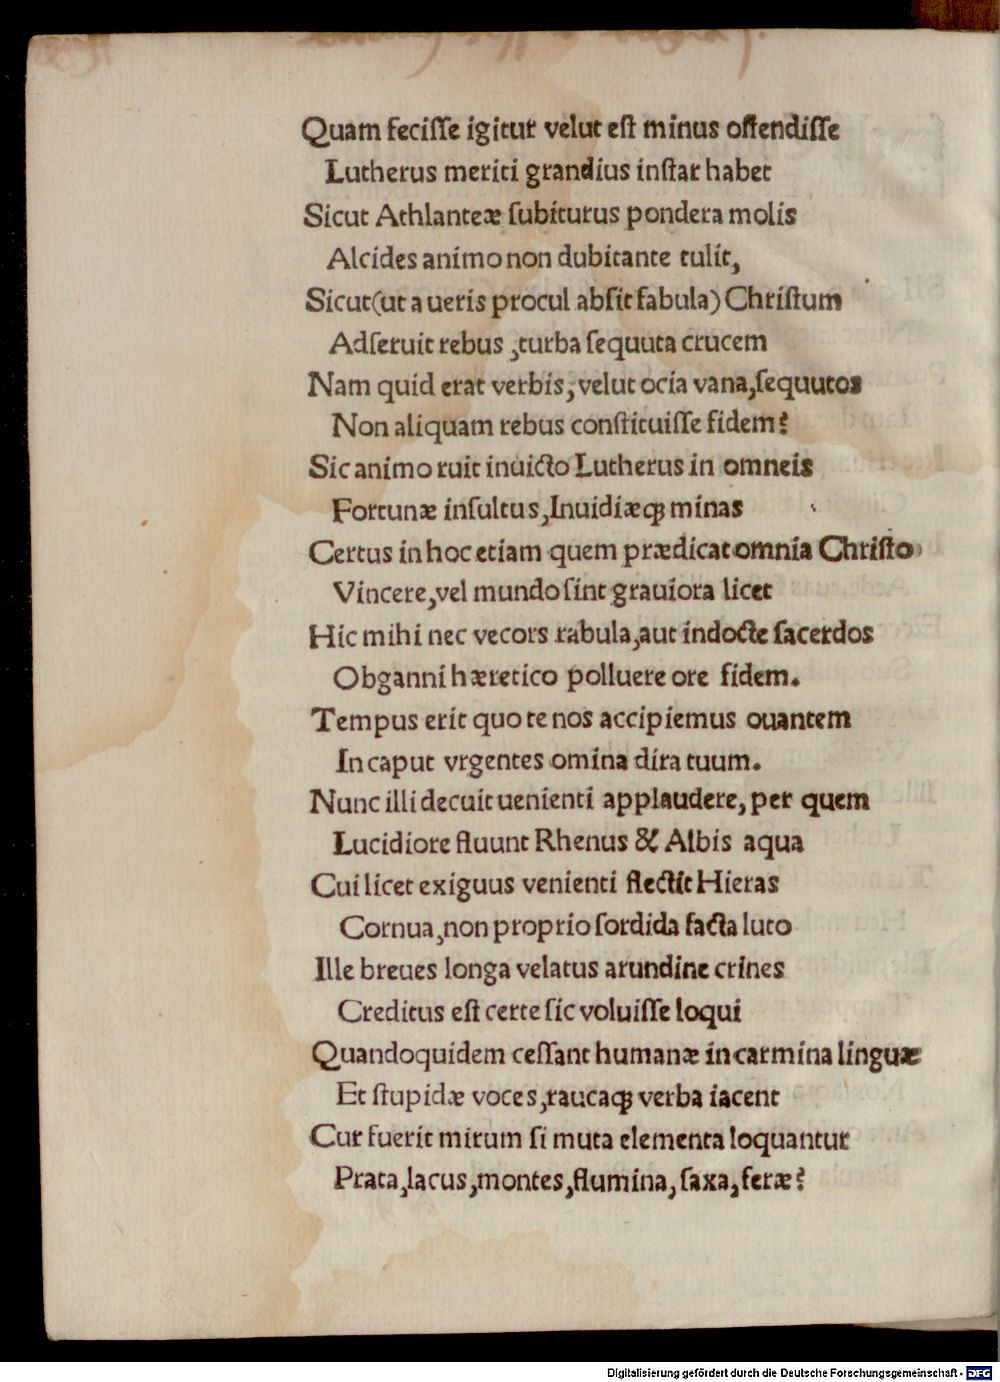 Quam feciſſe igitur velut eſt minus oſtendiſſe
Lutherus meriti grandius inſtar habet
Sicut Athlanteæ ſubiturus pondera molis
Alcides animo non dubitante tulit,
Sicut(ut a ueris procul abſit fabula) Chriſtum
Adſeruit rebus ,turba ſequuta crucem
Nam quid erat verbis, velut ocia vana, ſequutos
Non aliquam rebus conſtituiſſe fidem?
Sic animo ruit inuicto Lutherus in omneis
Fortunæ inſultus, Inuidiæqꝫ minas
Certus in hoc etiam quem prædicat omnia Chriſto
Vincere, vel mundo ſint grauiora licet
Hic mihi nec vecors rabula, aut indocte ſacerdos
Obganni hæretico polluere ore fidem.
Tempus erit quo te nos accipiemus ouantem
In caput vrgentes omina dira tuum.
Nunc illi decuit uenienti applaudere, per quem
Lucidiore fluunt Rhenus & Albis aqua
Cui licet exiguus venienti flectit Hieras
Cornua, non proprio ſordida facta luto
Ille breues longa velatus arundine crines
Creditus eſt certe ſic voluiſſe loqui
Quandoquidem ceſſant humanæ in carmina linguæ
Et ſtupidæ voces, raucaqꝫ verba iacent
Cur fuerit mirum ſi muta elementa loquantur
Prata, lacus, montes, flumina, ſaxa, feræ?
Digitalisierung gefördert durch die Deutsche Forschungsgemeinschaft - DFG